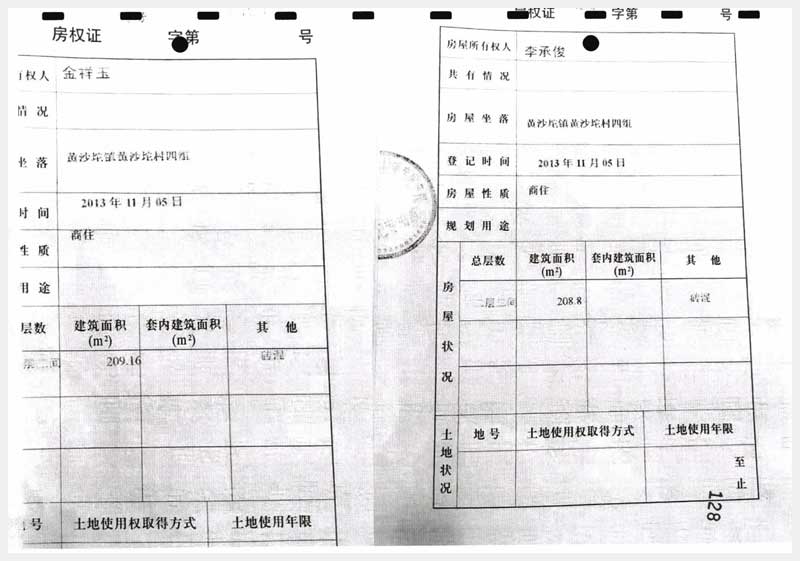 房权证 字第 号
有权人 金祥玉
情况
坐落 黄沙坨镇黄沙坨村四组
时间 2013年11月05日
性质 商住
用途
层数 建筑面积(m²) 套内建筑面积(m²) 其他
层二间 209.16 砖混
地号 土地使用权取得方式 土地使用年限
房权证 字第 号
房屋所有权人 李承俊
共有情况
房屋坐落 黄沙坨镇黄沙坨村四组
登记时间 2013年11月05日
房屋性质 商住
规划用途
房屋状况
总层数 建筑面积(m²) 套内建筑面积(m²) 其他
二层二间 208.8 砖混
土地状况
地号 土地使用权取得方式 土地使用年限
至
止
128